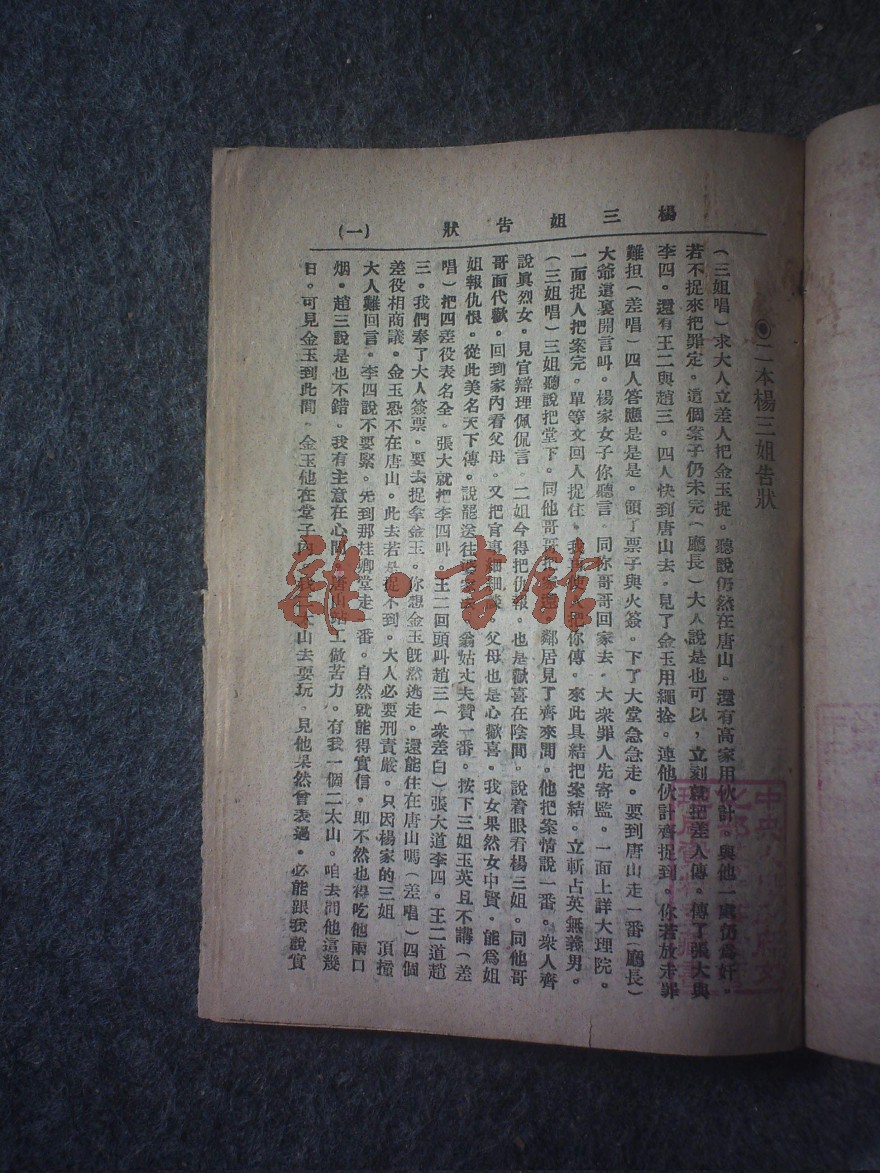 楊三姐告狀 (一)
◉二本楊三姐告狀
(三姐唱)求大人立差人把金玉捉。聽說仍然在唐山。還有高家用伙計。與他一處仍爲奸。
若不捉來把罪定。這個案子仍未完(廳長)大人說是也可以,立刻就把差人傳。傳了張大與
李四。還有王二與趙三。四人快到唐山去。見了金玉用繩拴。連他伙計齊捉到。你若放走罪
難担(差唱)四人答應是是是。領了票子與火簽。下了大堂急急走。要到唐山走一番(廳長)
大爺這裏開言叫。楊家女子你聽言。同你哥哥回家去。大衆罪人先寄監。一面上詳大理院。
一面捉人把案完。單等文回人捉住。我 把你傳。來此具結把案結。立斬占英無義男。
(三姐唱)三姐聽說把堂下。同他哥哥 鄰居見了齊來問。他把案情說一番。衆人齊
說眞烈女。見官辯理佩侃言。二姐今得把仇報。也是歡喜在陰間。說着眼看楊三姐。同他哥
哥面代歡。回到家內看父母。又把官事細細 父母也是心歡喜。我女果然女中賢。能爲姐
姐報仇恨。從此美名天下傳。說罷送往 翁姑丈夫贊一番。按下三姐玉英且不講(差
唱)把四差役表名全。張大就把李四叫。王二回頭叫趙三(衆差白)張大道李四。王二道趙
三。我們奉了大人簽票。要去捉拿金玉。你想金玉既然逃走。還能住在唐山嗎(差唱)四個
差役相商議。金玉恐不在唐山。此去若是捉不到。大人必要刑責嚴。只因楊家的三姐 頂撞
大人難回言。李四說不要緊。先到那桂卿堂走一番。自然就能得實信。即不然也得吃他兩口
烟。趙三說是也不錯。我有主意在心間。唐山站工做苦力。有我一個二太山。咱去問他這幾
日。可見金玉到此間。金玉他在堂子內 太山去耍玩。見他果然曾表過。必能跟我說實
雜·書館
中央